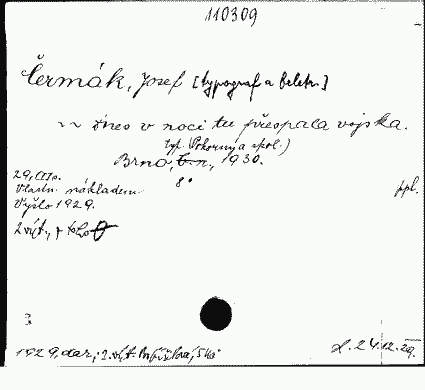 110309
Čermák, Josef [typograf a beletr.]
~~ Dnes v noci tu přespala vojska.
typ. Pokorný a spol.)
Brno, b.n., 1930.
29, III s. 8°
Vlastn. nákladem ppl.
Vyšlo 1929.
2 výt., z toho
1929, dar, 2. výt.
d. 24.12.29.